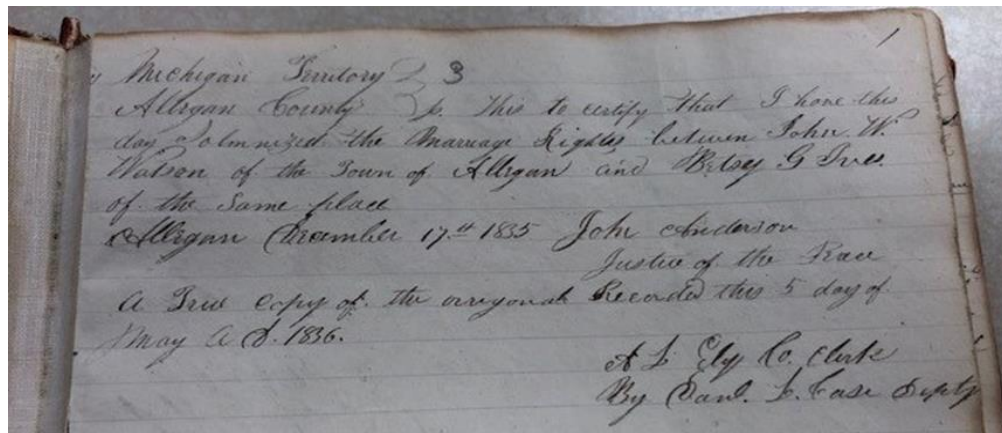 1
Michigan Territory } 3
Allegan County } This to certify that I have this
day Solmnized the Marriage Rights between John W.
Watson of the Town of Allegan and Betsy G Ives
of the Same place
Allegan December 17th 1835 John Anderson
Justice of the Peace
A True Copy of the orregonal Recorded this 5 day of
May A D. 1836.
A L Ely Co. Clerk
By Danl. L. Case Deputy